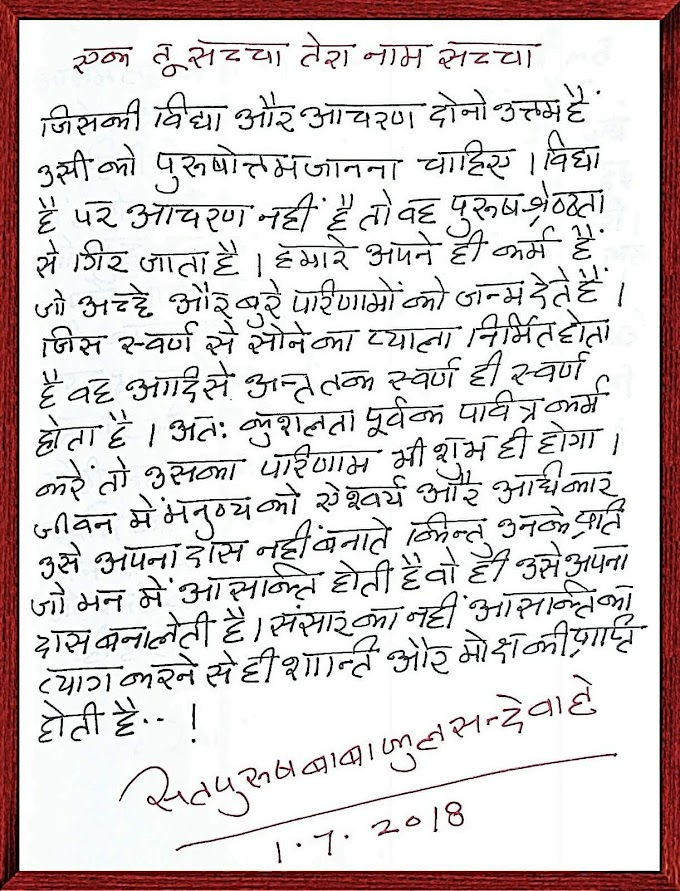 एक तू सच्चा तेरा नाम सच्चा
जिसकी विद्या और आचरण दोनो उत्तम है
उसी को पुरूषोत्तम जानना चाहिए । विद्या
है पर आचरण नहीं है तो वह पुरूष श्रेष्ठता
से गिर जाता है । हमारे अपने ही कर्म हैं
जो अच्छे और बुरे परिणामों को जन्म देते हैं ।
जिस स्वर्ण से सोने का प्याला निर्मित होता
है वह आदि से अन्त तक स्वर्ण ही स्वर्ण
होता है । अतः कुशलता पूर्वक पवित्र कर्म
करें तो उसका परिणाम भी शुभ ही होगा ।
जीवन में मनुष्य को ऐश्वर्य और अधिकार
उसे अपना दास नहीं बनाते किन्तु उनके प्रति
जो मन में आसक्ति होती है वो ही उसे अपना
दास बना लेती है । संसार का नहीं आसक्ति का
त्याग करने से ही शान्ति और मोक्ष की प्राप्ति
होती है . . !
सतपुरूष बाबा फुलसन्दे वाले
1 . 7 . 2018